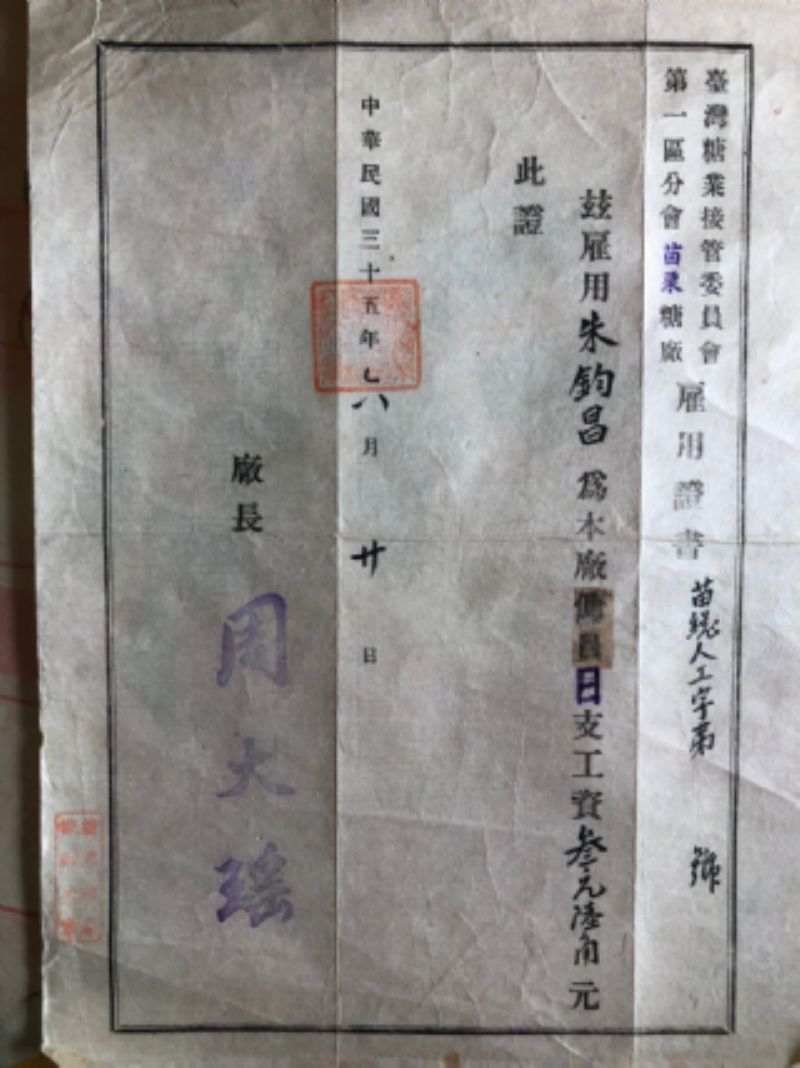 臺灣糖業接管委員會
第一區分會苗栗糖廠
雇用證書
苗總人工字第 號
玆雇用朱鈞昌為本廠傭員日支工資叁元陸角元
此證
中華民國三十五年七八月廿日
廠長 周大瑤